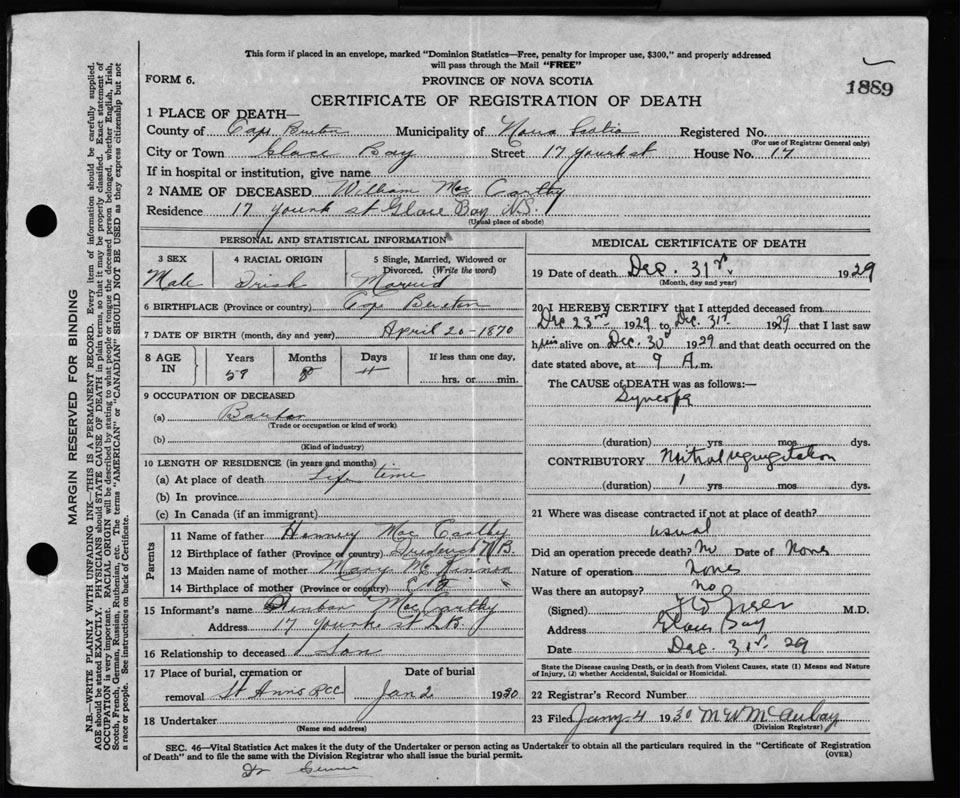 This form if placed in an envelope, marked "Dominion Statistics—Free, penalty for improper use, $300," and properly addressed
will pass through the Mail "FREE"
FORM 6.
PROVINCE OF NOVA SCOTIA
1889
CERTIFICATE OF REGISTRATION OF DEATH
1 PLACE OF DEATH—
County of Cape Breton Municipality of Nova Scotia Registered No.
(For use of Registrar General only)
City or Town Glace Bay Street 17 Yourk st House No. 17
If in hospital or institution, give name
2 NAME OF DECEASED William Mac Carthy
Residence 17 Yourk st Glace Bay N.S.
(Usual place of abode)
PERSONAL AND STATISTICAL INFORMATION
3 SEX Male
4 RACIAL ORIGIN Irish
5 Single, Married, Widowed or Divorced. (Write the word) Married
6 BIRTHPLACE (Province or country) Cape Breton
7 DATE OF BIRTH (month, day and year) April 20-1870
8 AGE IN Years 59 Months 8 Days If less than one day, hrs. or min.
9 OCCUPATION OF DECEASED
(a) Barber
(Trade or occupation or kind of work)
(b)
(Kind of industry)
10 LENGTH OF RESIDENCE (in years and months)
(a) At place of death Life time
(b) In province
(c) In Canada (if an immigrant)
Parents
11 Name of father Mac Carthy
12 Birthplace of father (Province or country) N.B.
13 Maiden name of mother Mary McKinnon
14 Birthplace of mother (Province or country)
15 Informant's name Mac Carthy
Address 17 Yourk st
16 Relationship to deceased Son
17 Place of burial, cremation or removal St Anns
Date of burial Jan 2 1930
18 Undertaker
(Name and address)
MEDICAL CERTIFICATE OF DEATH
19 Date of death Dec. 31st. 1929
(Month, day and year)
20 I HEREBY CERTIFY that I attended deceased from
Dec 23rd 1929 to Dec. 31st 1929 that I last saw
him alive on Dec. 30th 1929 and that death occurred on the
date stated above, at 9 A.m.
The CAUSE of DEATH was as follows:—
Syncope
(duration) yrs mos dys.
CONTRIBUTORY Mitral regurgitation
(duration) 1 yrs mos dys.
21 Where was disease contracted if not at place of death?
usual
Did an operation precede death? No Date of None
Nature of operation None
Was there an autopsy? No
(Signed) M.D.
Address Glace Bay
Date Dec. 31st. 29
State the Disease causing Death, or in Death from Violent Causes, state (1) Means and Nature
of Injury, (2) whether Accidental, Suicidal or Homicidal.
22 Registrar's Record Number
23 Filed Jany 4 1930 McAulay
(Division Registrar)
SEC. 46—Vital Statistics Act makes it the duty of the Undertaker or person acting as Undertaker to obtain all the particulars required in the "Certificate of Registration
of Death" and to file the same with the Division Registrar who shall issue the burial permit.
(OVER)
MARGIN RESERVED FOR BINDING
N.B.—WRITE PLAINLY WITH UNFADING INK—THIS IS A PERMANENT RECORD. Every item of information should be carefully supplied.
AGE should be stated EXACTLY. PHYSICIANS should STATE CAUSE OF DEATH in plain terms, so that it may be properly classified. Exact statement of
OCCUPATION is very important. RACIAL ORIGIN will be described by stating to what people or tongue the deceased person belonged, whether English, Irish,
Scotch, French, German, Russian, Ruthenian, etc. The terms "AMERICAN" or "CANADIAN" SHOULD NOT BE USED as they express citizenship but not
a race or people. See instructions on back of Certificate.